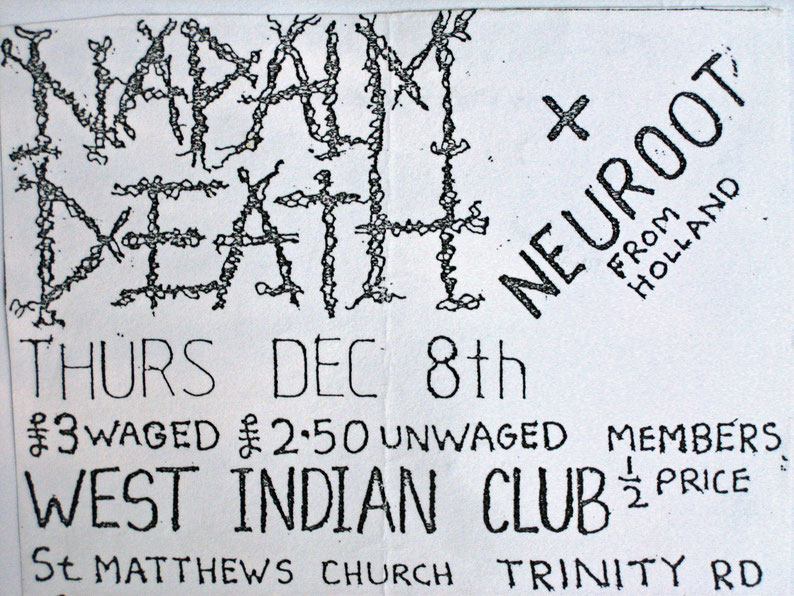 NAPALM
DEATH
+
NEUROOT
FROM
HOLLAND
THURS DEC 8th
£3 WAGED £2.50 UNWAGED MEMBERS
1/2 PRICE
WEST INDIAN CLUB
St MATTHEWS CHURCH TRINITY RD